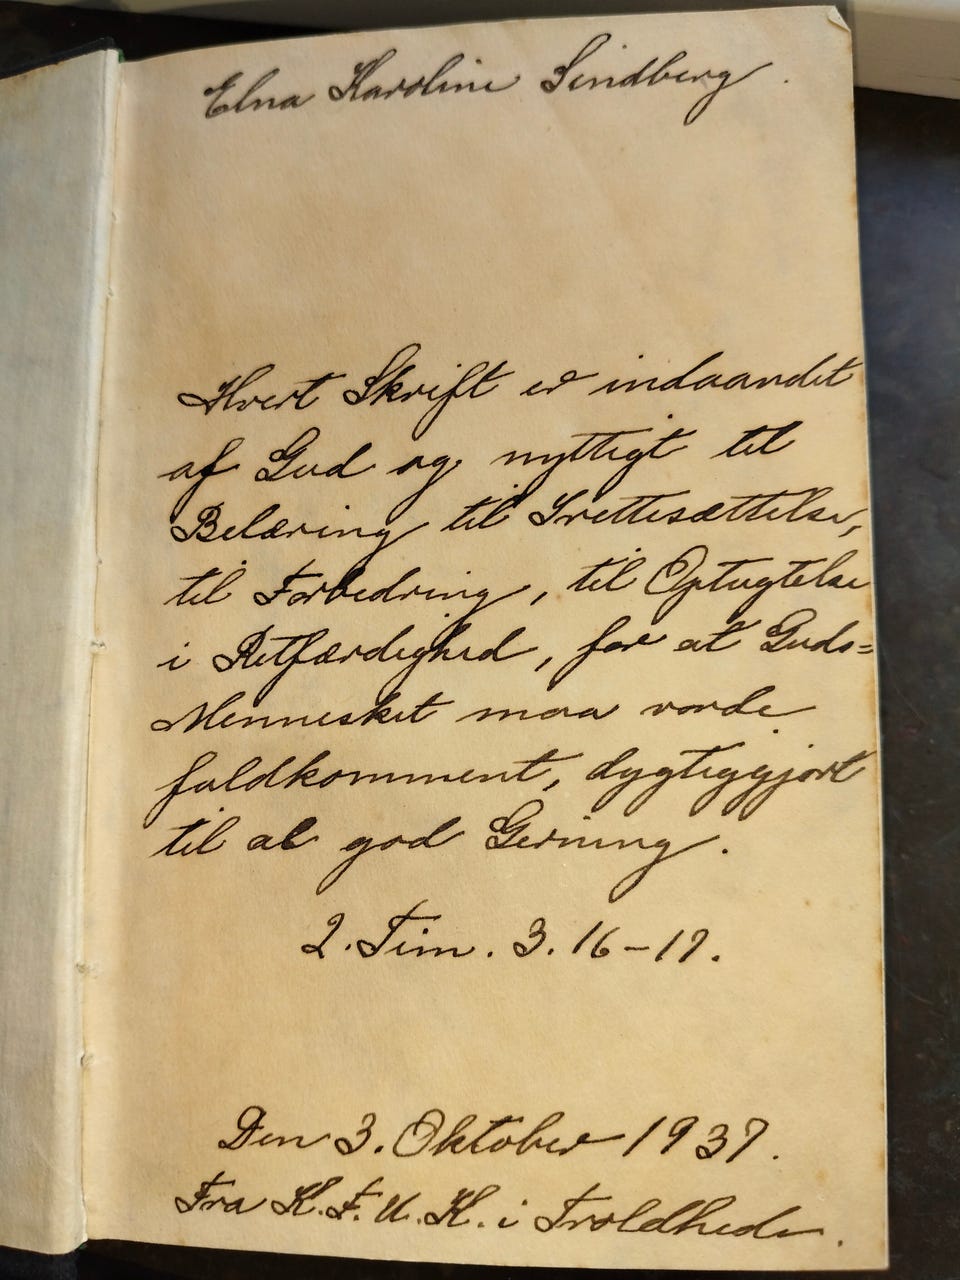 Elna Karoline Sindberg.
Hvert Skrift er indaandet
af Gud og nyttigt til
Belæring til Irettesættelse,
til Forbedring, til Optugtelse
i Retfærdighed, for at Guds=
Mennesket maa vorde
fuldkomment, dygtiggjort
til al god Gerning.
2. Tim. 3. 16-17.
Den 3. Oktober 1937.
Fra K. F. U. K. i Troldhede.